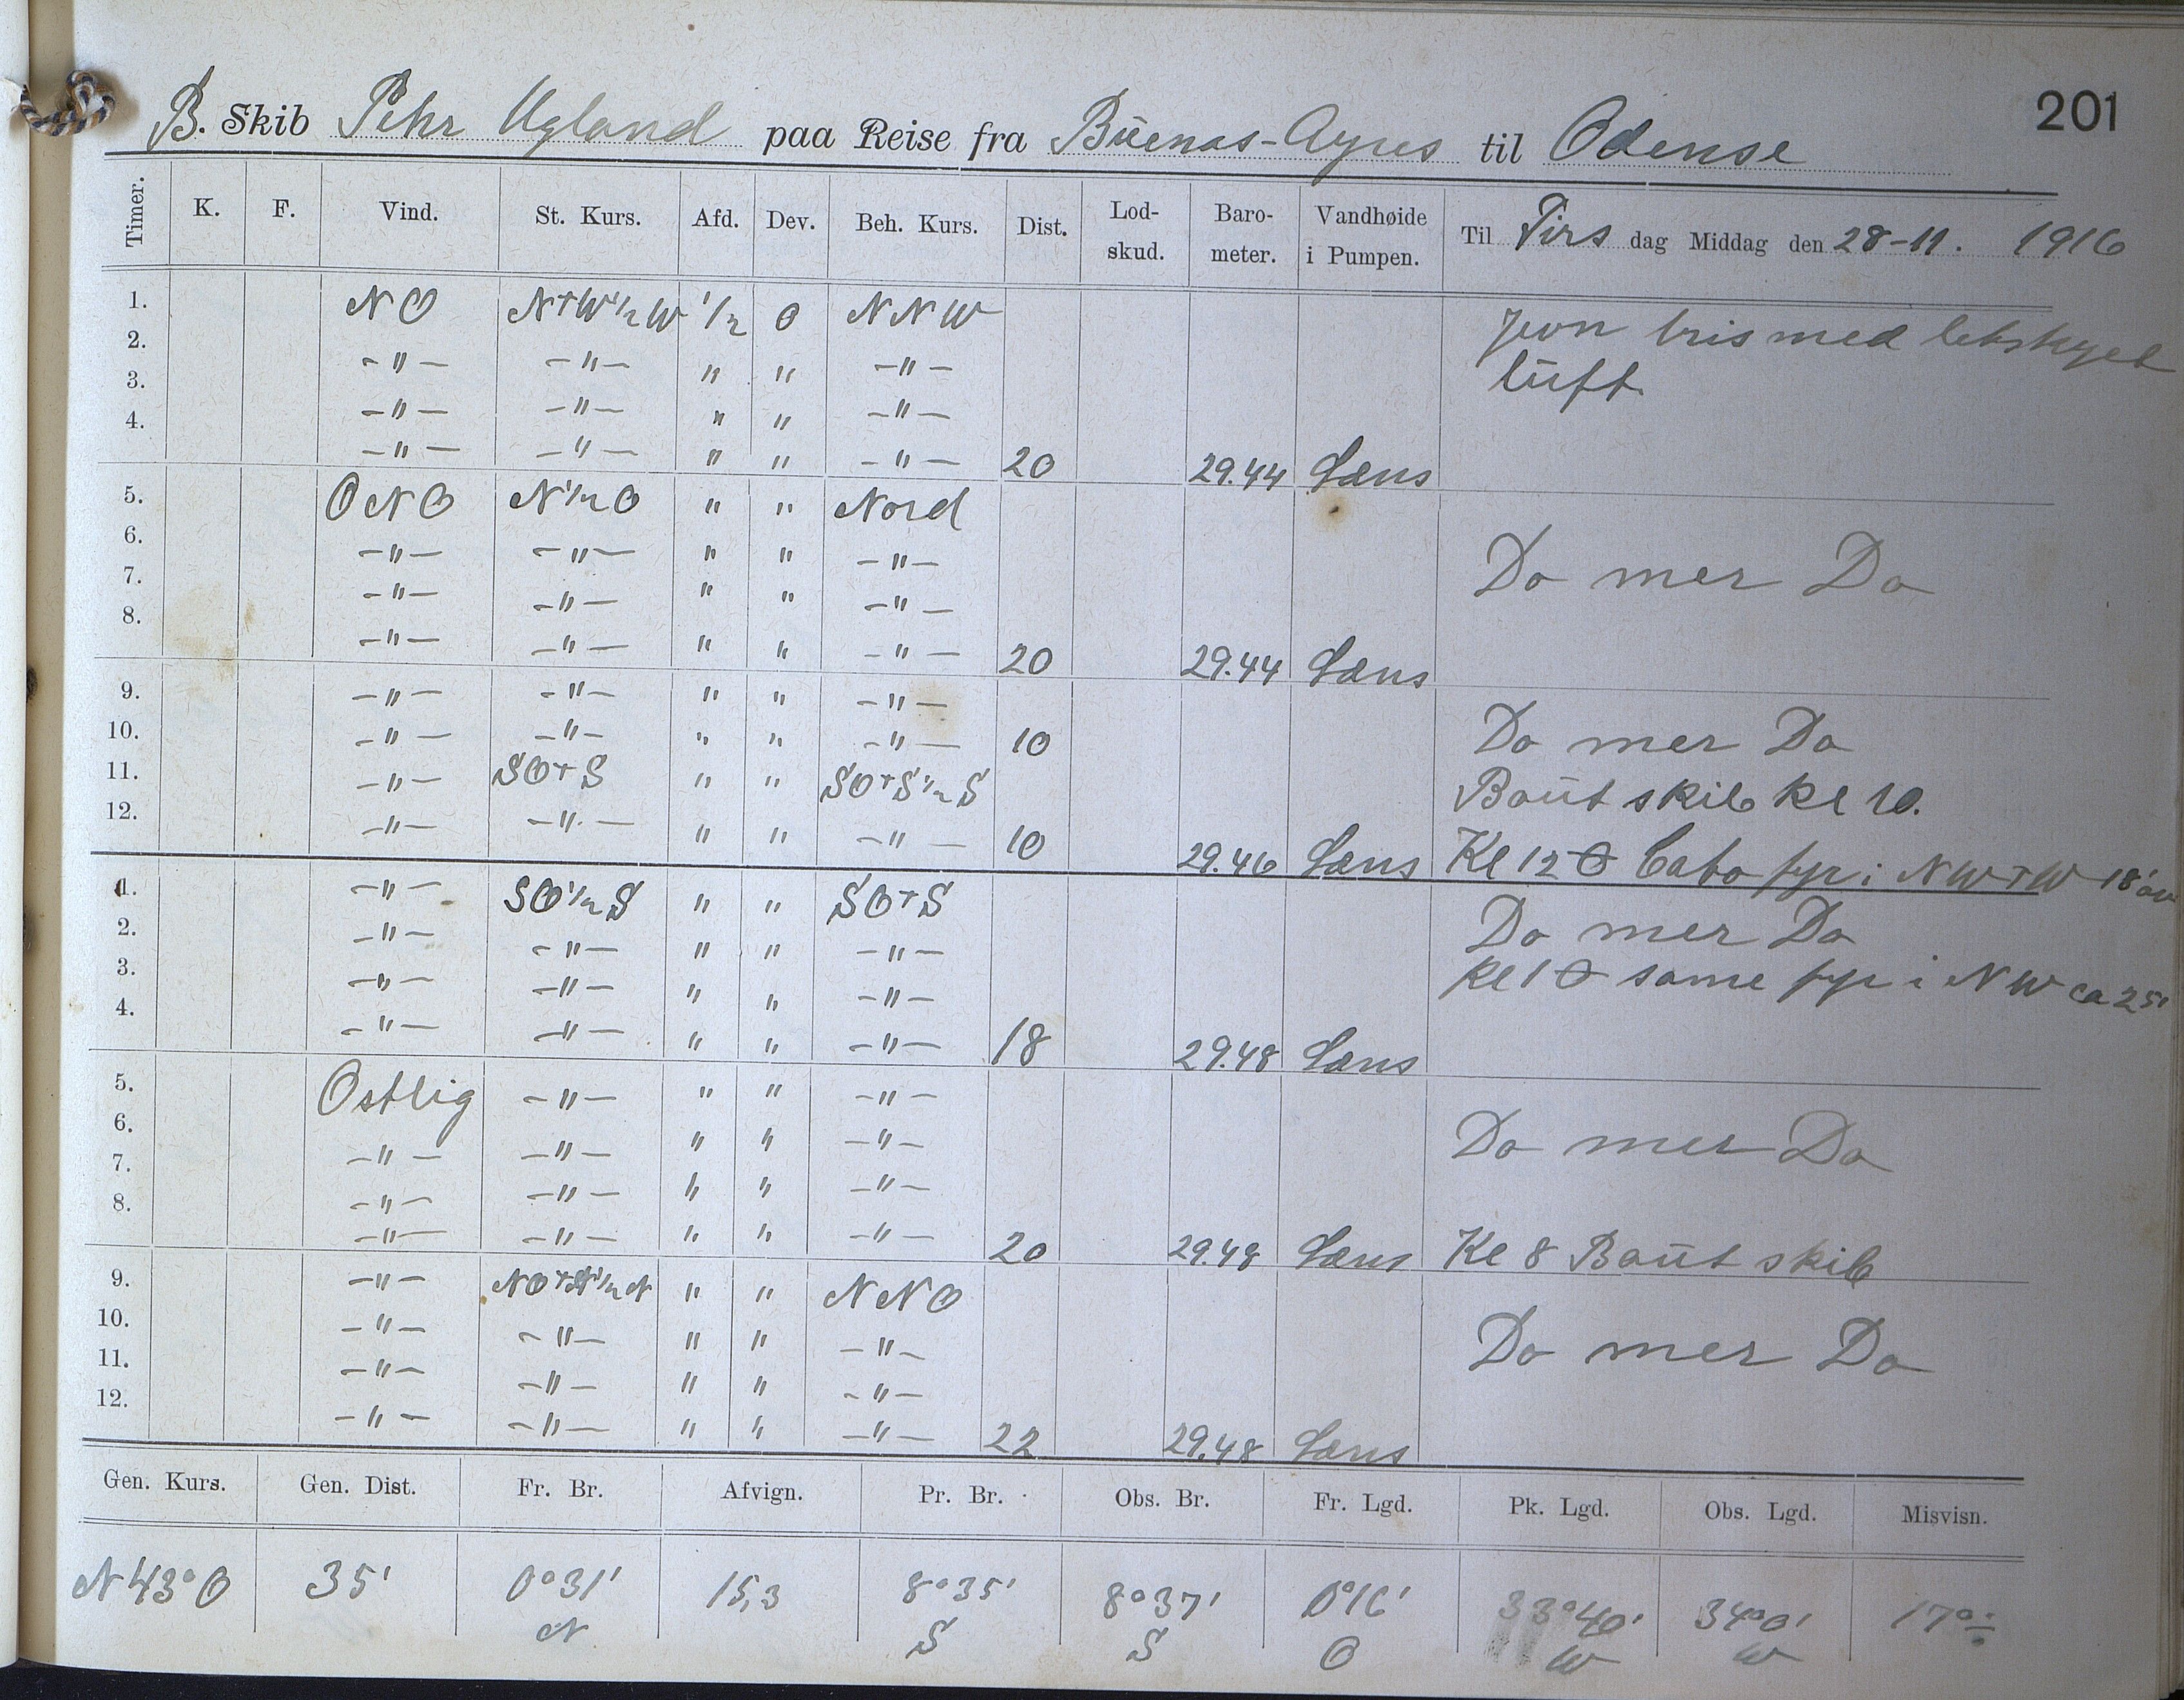 201
B. Skib Pehr Ugland paa Reise fra Buenas-Ayres til Odense
Timer. K. F. Vind. St. Kurs. Afd. Dev. Beh. Kurs. Dist. Lod-skud. Baro-meter. Vandhøide i Pumpen. Til Tirs dag Middag den 28-11. 1916
1. NO N+W½W ½ 0 NNW Jevn bris med letskyet
2. -"- -"- " " -"- luft.
3. -"- -"- " " -"-
4. -"- -"- " " -"- 20 29.44 Læns
5. ONO N½O " " Nord
6. -"- -"- " " -"- Do mer Do
7. -"- -"- " " -"-
8. -"- -"- " " -"- 20 29.44 Læns
9. -"- -"- " " -"- Do mer Do
10. -"- -"- " " -"- 10
11. -"- SO+S " " SO+S½S Baut skib kl 10.
12. -"- -"- " " -"- 10 29.46 Læns Kl 12 Cabo fyr i NW+W 18'
1. -"- SO½S " " SO+S Do mer Do
2. -"- -"- " " -"-
3. -"- -"- " " -"- kl 1 same fyr i NW ca 25'
4. -"- -"- " " -"- 18 29.48 Læns
5. Ostlig -"- " " -"-
6. -"- -"- " " -"- Do mer Do
7. -"- -"- " " -"-
8. -"- -"- " " -"- 20 29.48 Læns Kl 8 Baut skib
9. -"- NO+N½N " " NNO
10. -"- -"- " " -"- Do mer Do
11. -"- -"- " " -"-
12. -"- -"- " " -"- 22 29.48 Læns
Gen. Kurs. Gen. Dist. Fr. Br. Afvign. Pr. Br. Obs. Br. Fr. Lgd. Pk. Lgd. Obs. Lgd. Misvisn.
N43°O 35' 0°31' 15,3 8°35' 8°37' 0°16' 33°40' 34°0' 17°
N S S O W W